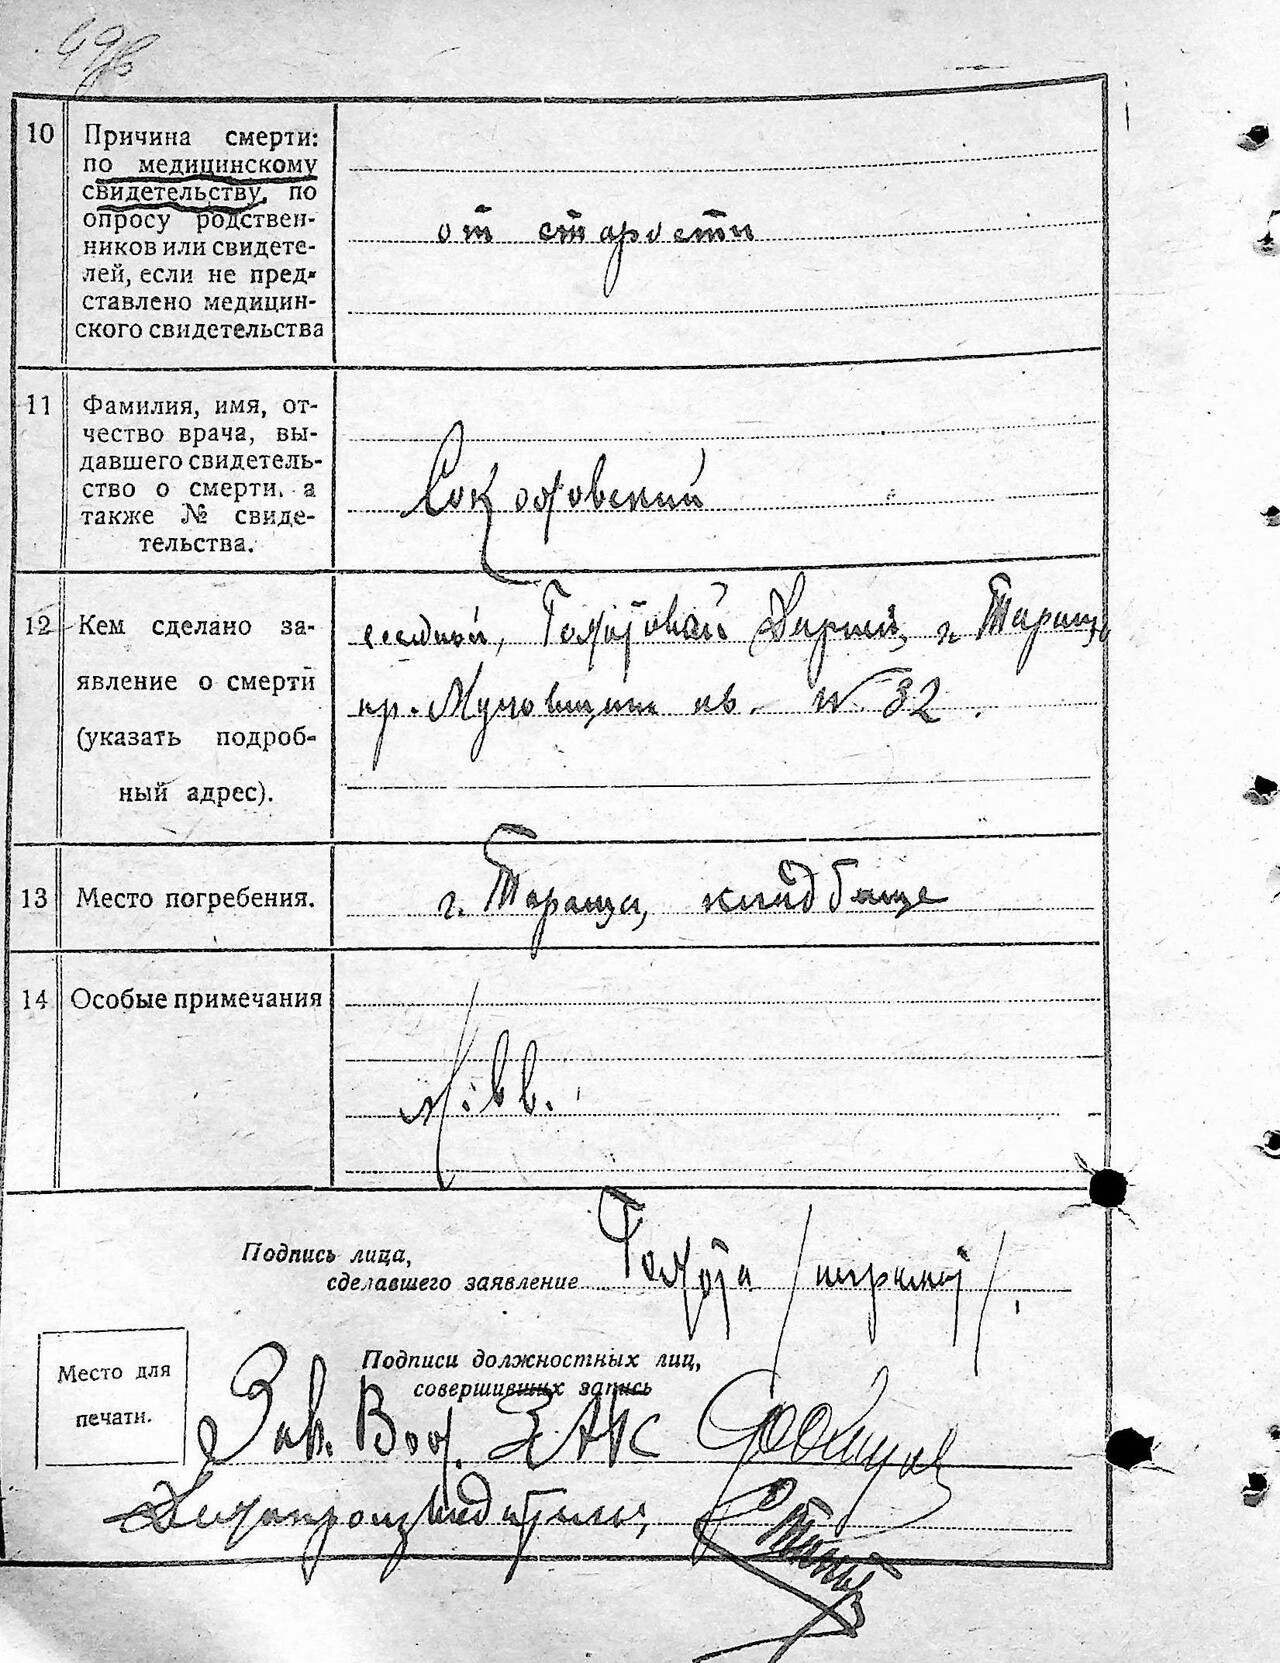 10
Причина смерти:
по медицинскому
свидетельству, по
опросу родствен-
ников или свидете-
лей, если не пред-
ставлено медицин-
ского свидетельства
от старости
11
Фамилия, имя, от-
чество врача, вы-
давшего свидетель-
ство о смерти, а
также № свиде-
тельства.
12
Кем сделано за-
явление о смерти
(указать подроб-
ный адрес).
Дарией, г. Тараща
№ 32.
13
Место погребения.
г. Тараща, кладбище
14
Особые примечания
Подпись лица,
сделавшего заявление
Место для
печати.
Подписи должностных лиц,
совершивших запись
Зав. ЗАГС
Делопроизводитель